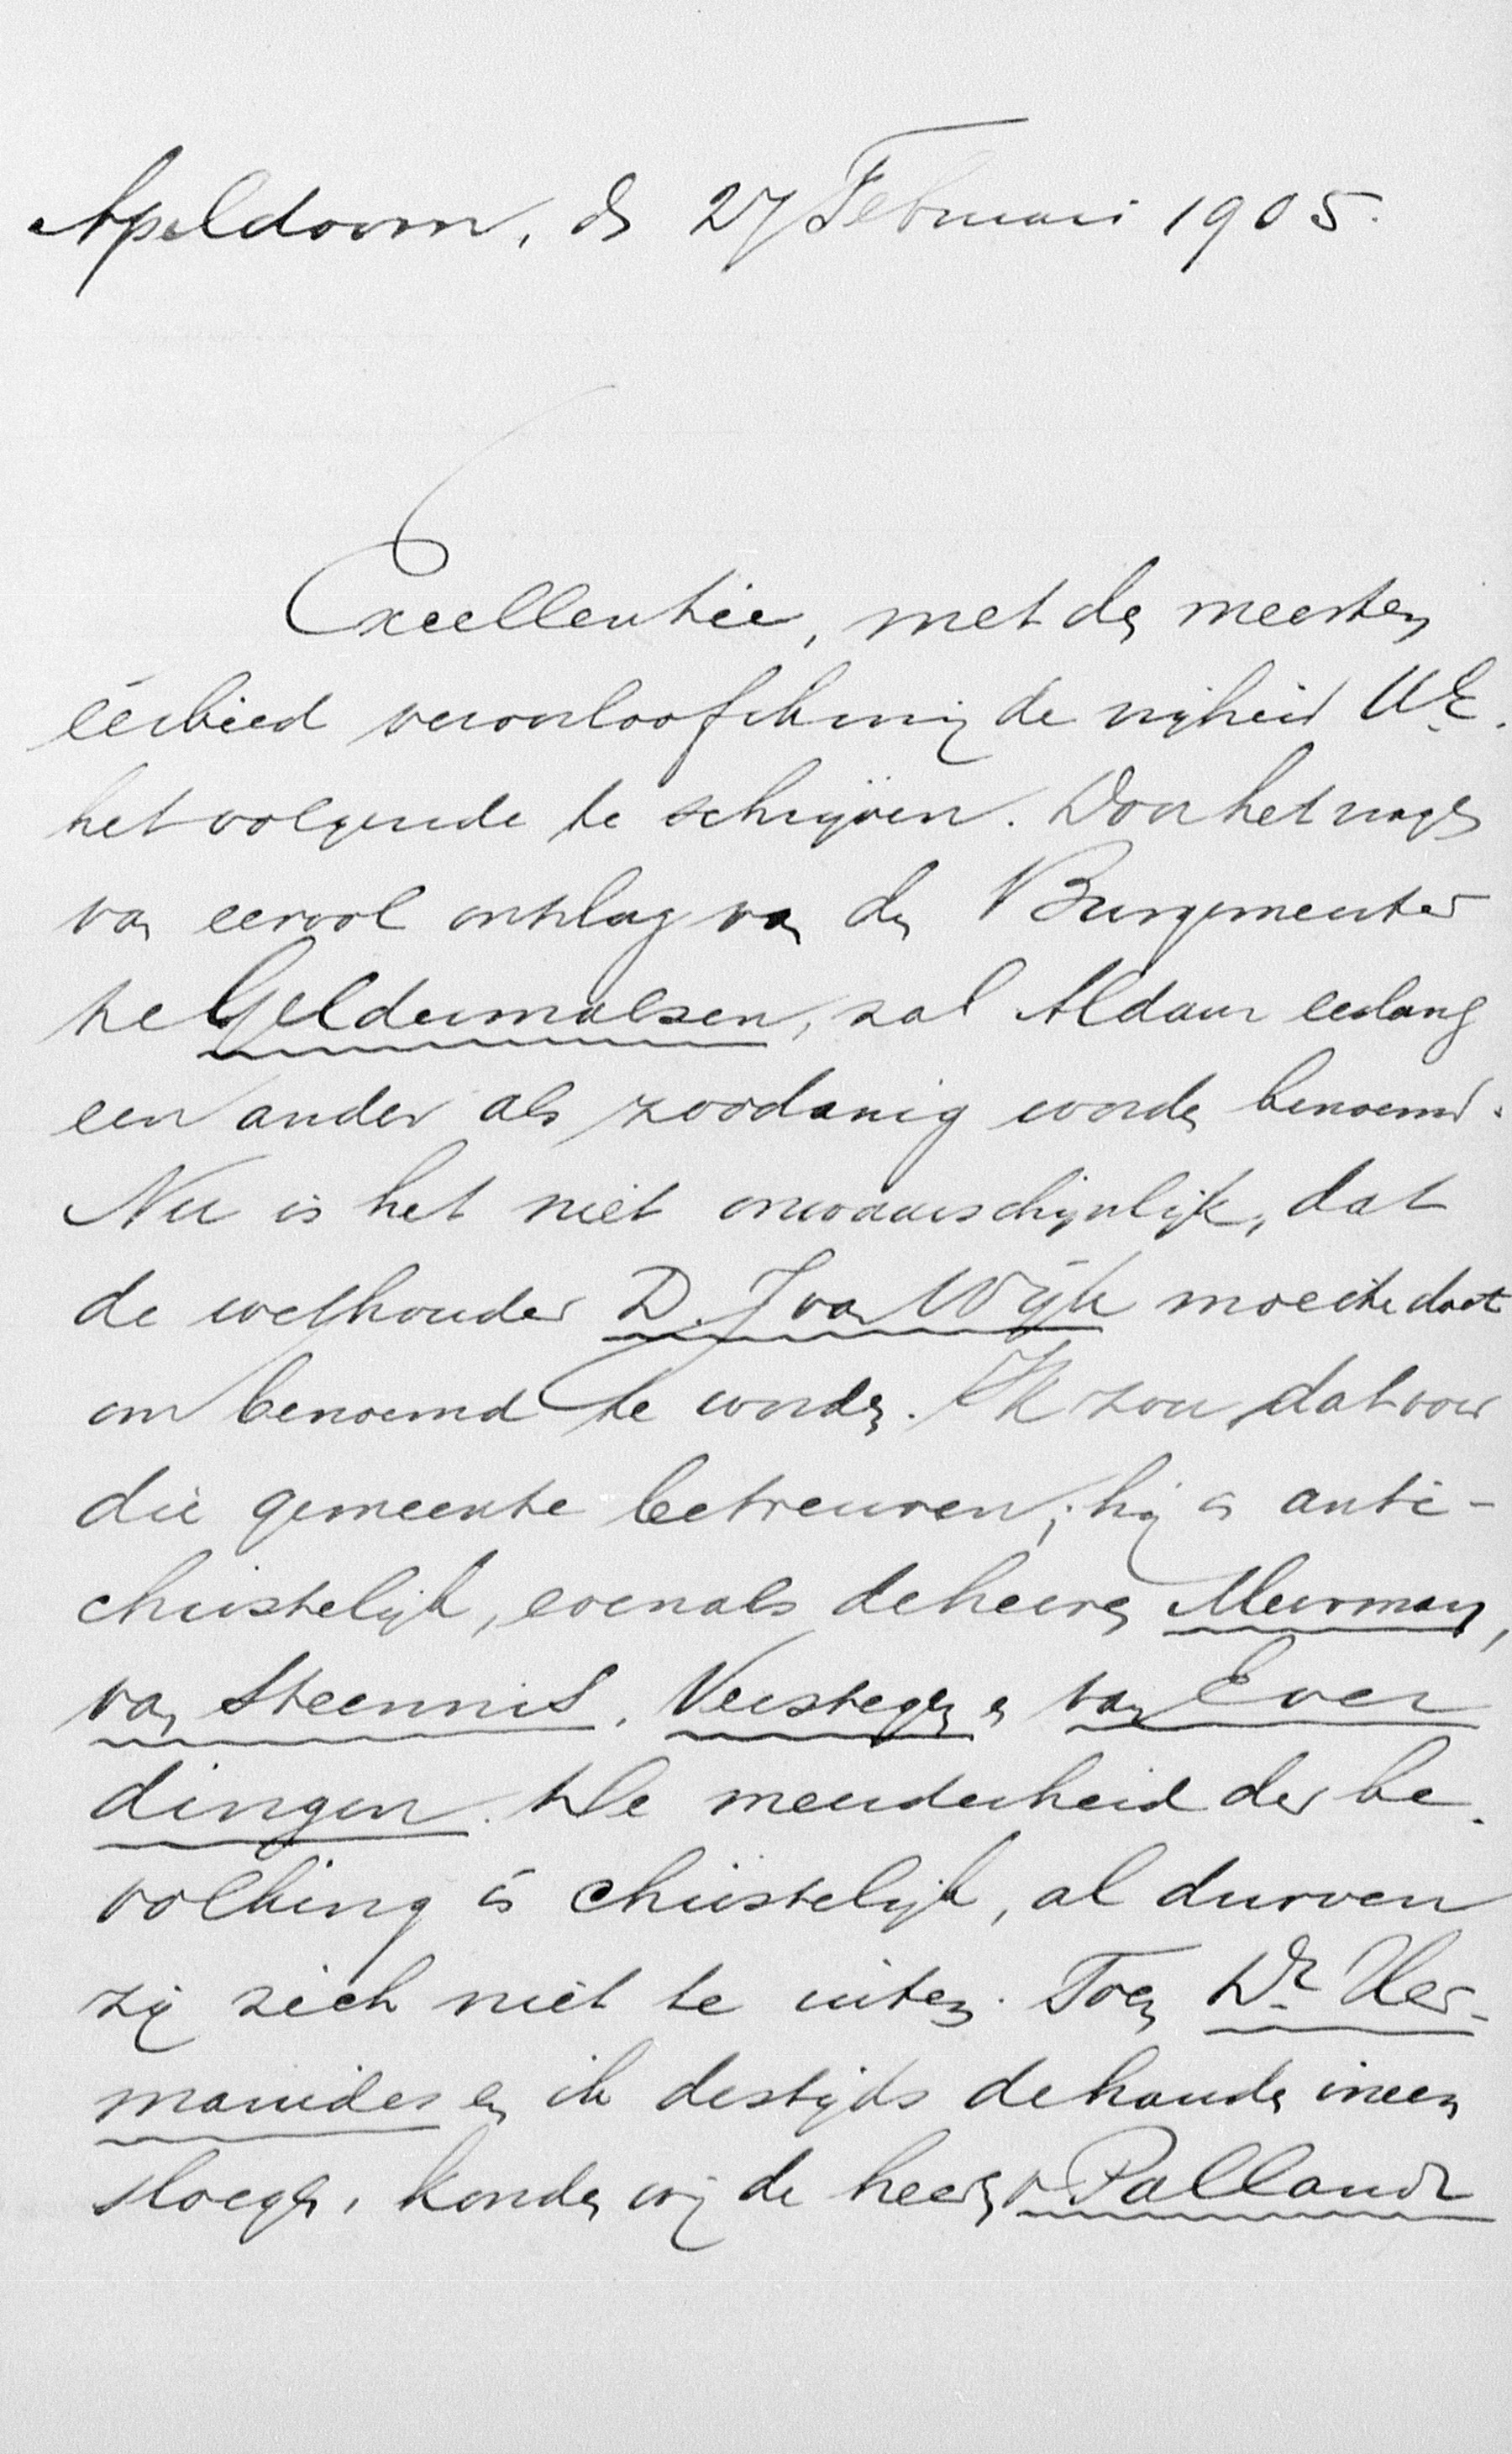 Apeldoorn, den 27 Februari 1905.
Excellentie, met den meesten
eerbied veroorloof ik mij de vrijheid U.E.
het volgende te schrijven. Door het vragen
van eervol ontslag van den Burgemeester
te Geldermalsen, zal Aldaar eerlang
een ander als zoodanig worden benoemd.
Nu is het niet onwaarschijnlijk, dat
de wethouder D. J van Wijk moeite doet
om benoemd te worden. Ik zou dat voor
die gemeente betreuren; hij is anti-
christelijk, evenals de heeren Meerman,
van Steennis, Verstegen en van Ever
dingen. De meerderheid der be-
volking is christelijk, al durven
zij zich niet te uiten. Toen Dr. Her-
manides en ik destijds de handen ineen
sloegen, konden wij de heeren v Pallandt